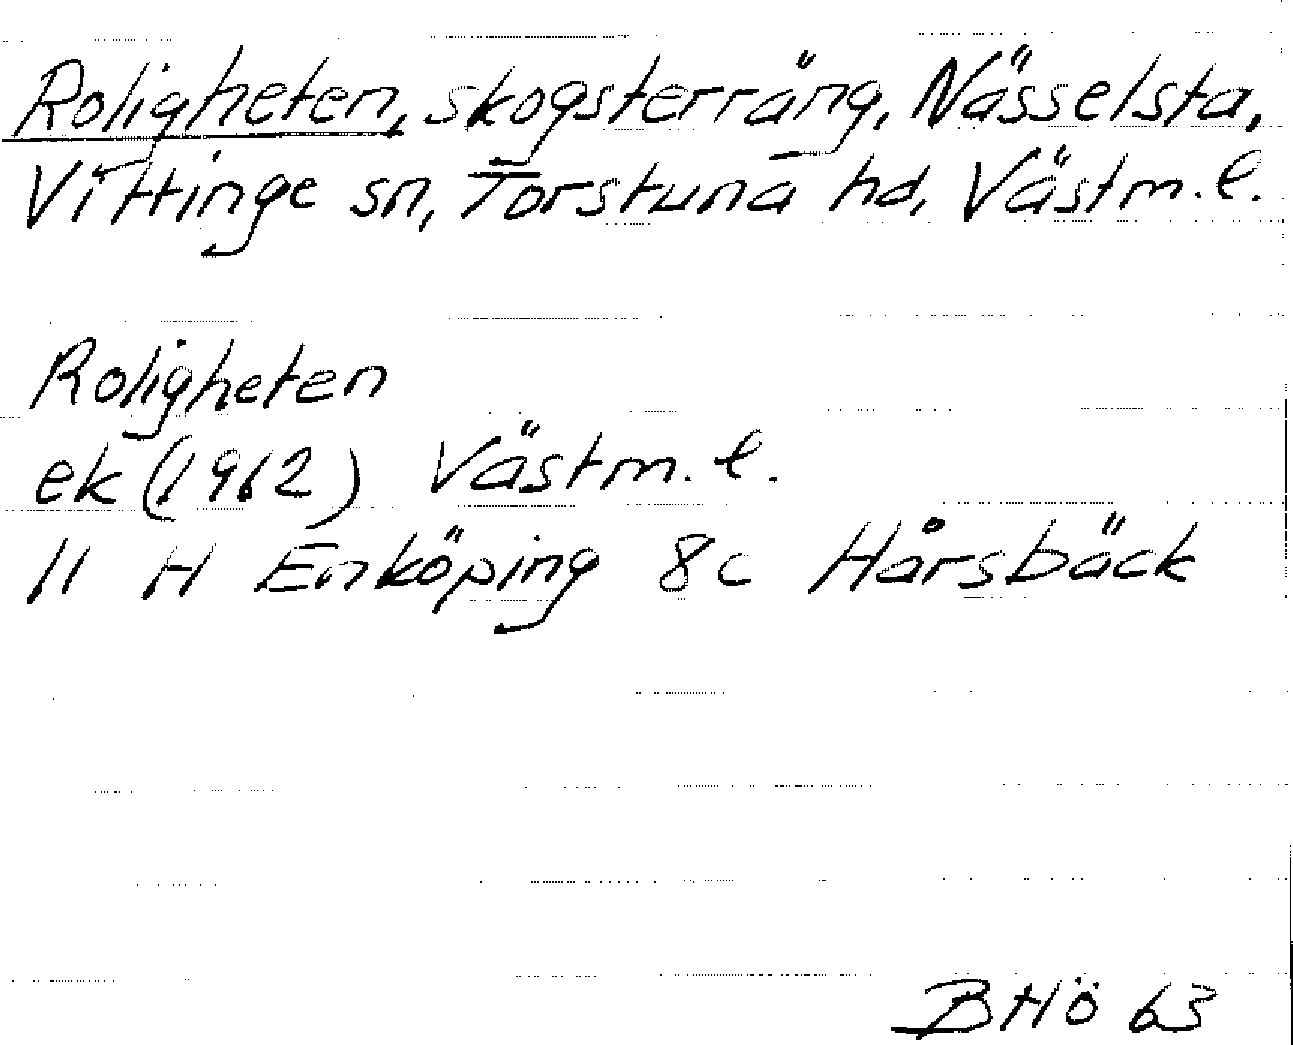 Roligheten, skogsterräng, Nässelsta,
Vittinge sn, Torstuna hd, Västm. l.
Roligheten
ek (1962) Västm. l.
11 H Enköping 8c Hårsbäck
BHö 63